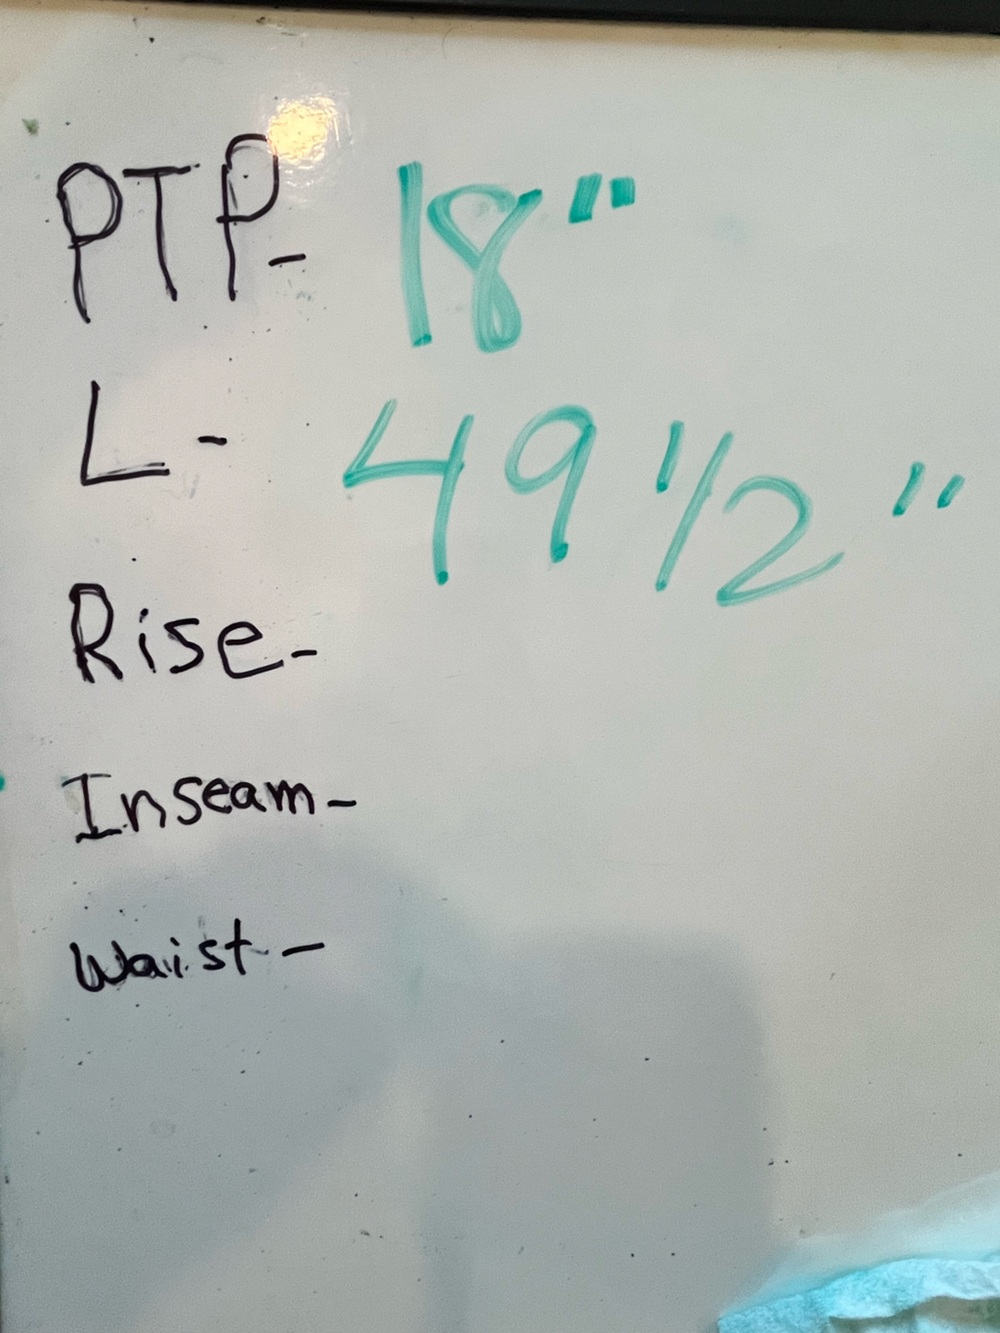 PTP- 18"
L- 49 1/2"
Rise-
Inseam-
Waist-